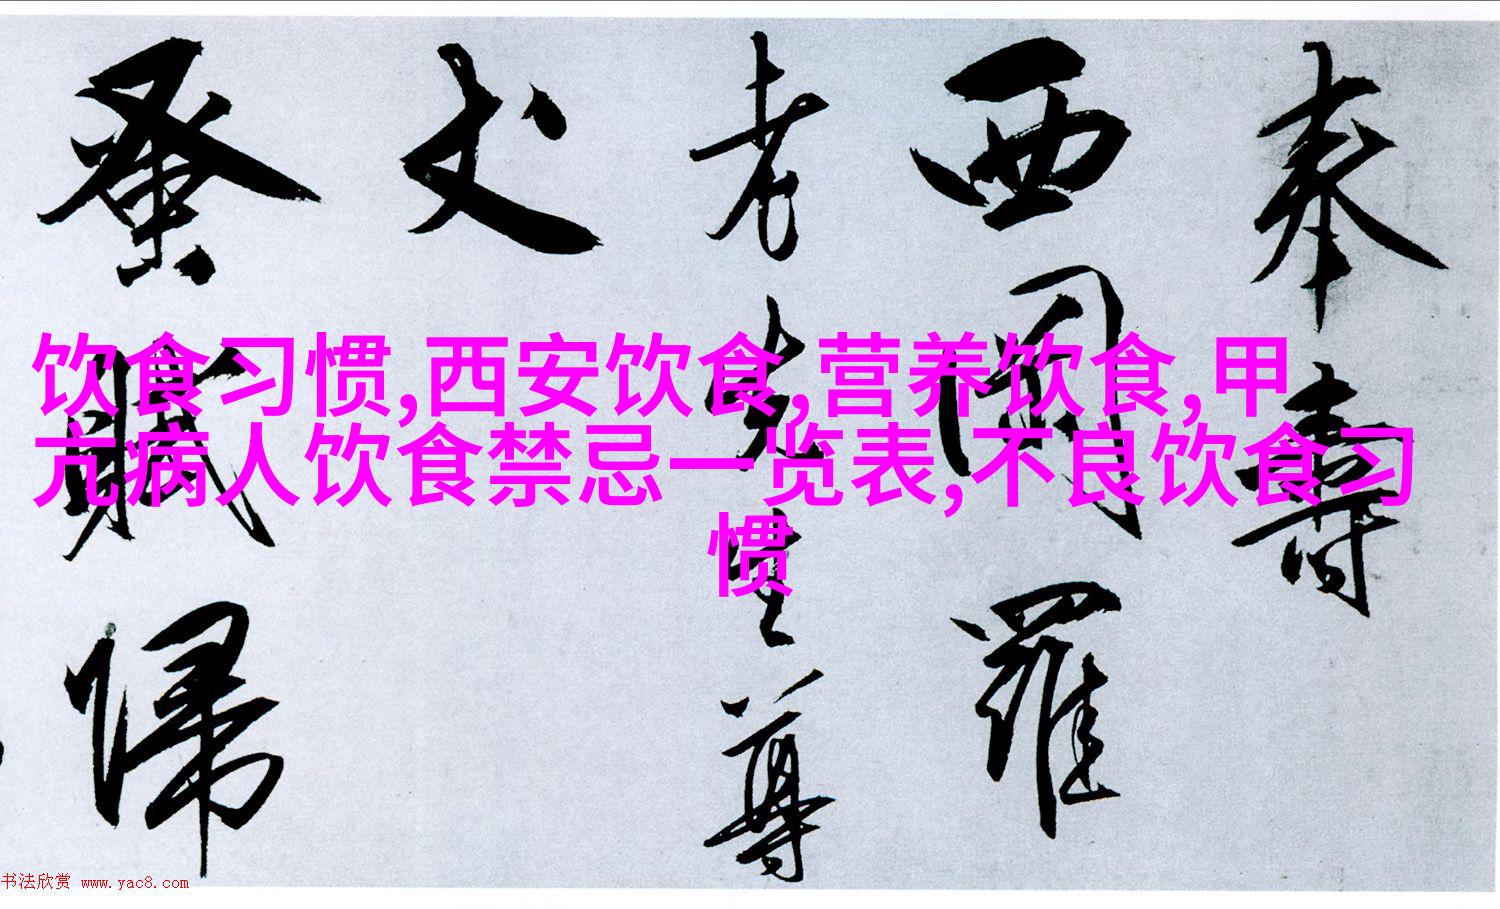 奉壽
西
羅
老先生尊
丈
蚤賦歸
饮食习惯,西安饮食,营养饮食,甲
亢病人饮食禁忌一览表,不良饮食习
惯
书法欣赏 www.yac8.com